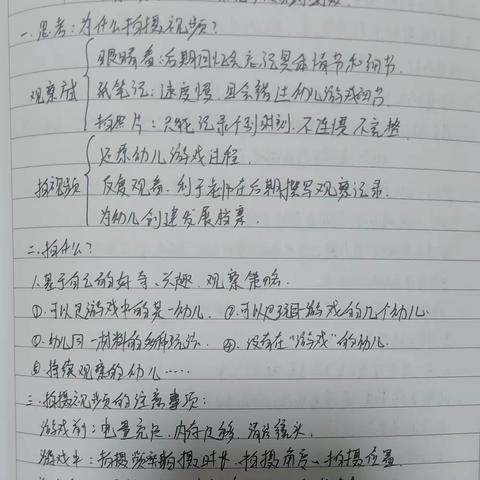 一.思考:为什么拍摄视频?
眼睛看:后期回忆会忘记具体情节和细节.
观察法 纸笔记:速度慢.且会错过幼儿游戏细节
拍照片:只能记录个别时刻.不连惯 不完整.
还原幼儿游戏过程.
拍视频 反复观看.利于老师在后期撰写观察记录.
为幼儿创建发展档案.
二.拍什么?
1.基于自己的好奇、兴趣.观察策略.
①.可以是游戏中的某一幼儿. ②.可以是玩同一游戏的几个幼儿.
③.幼儿同一材料的多种玩法. ④.没有在"游戏"的幼儿.
⑤.持续观察的幼儿……
三.拍摄视频的注意事项:
游戏前:电量充足.内存足够.清洁镜头.
游戏中:拍摄 拍摄时长.拍摄角度、拍摄位置.